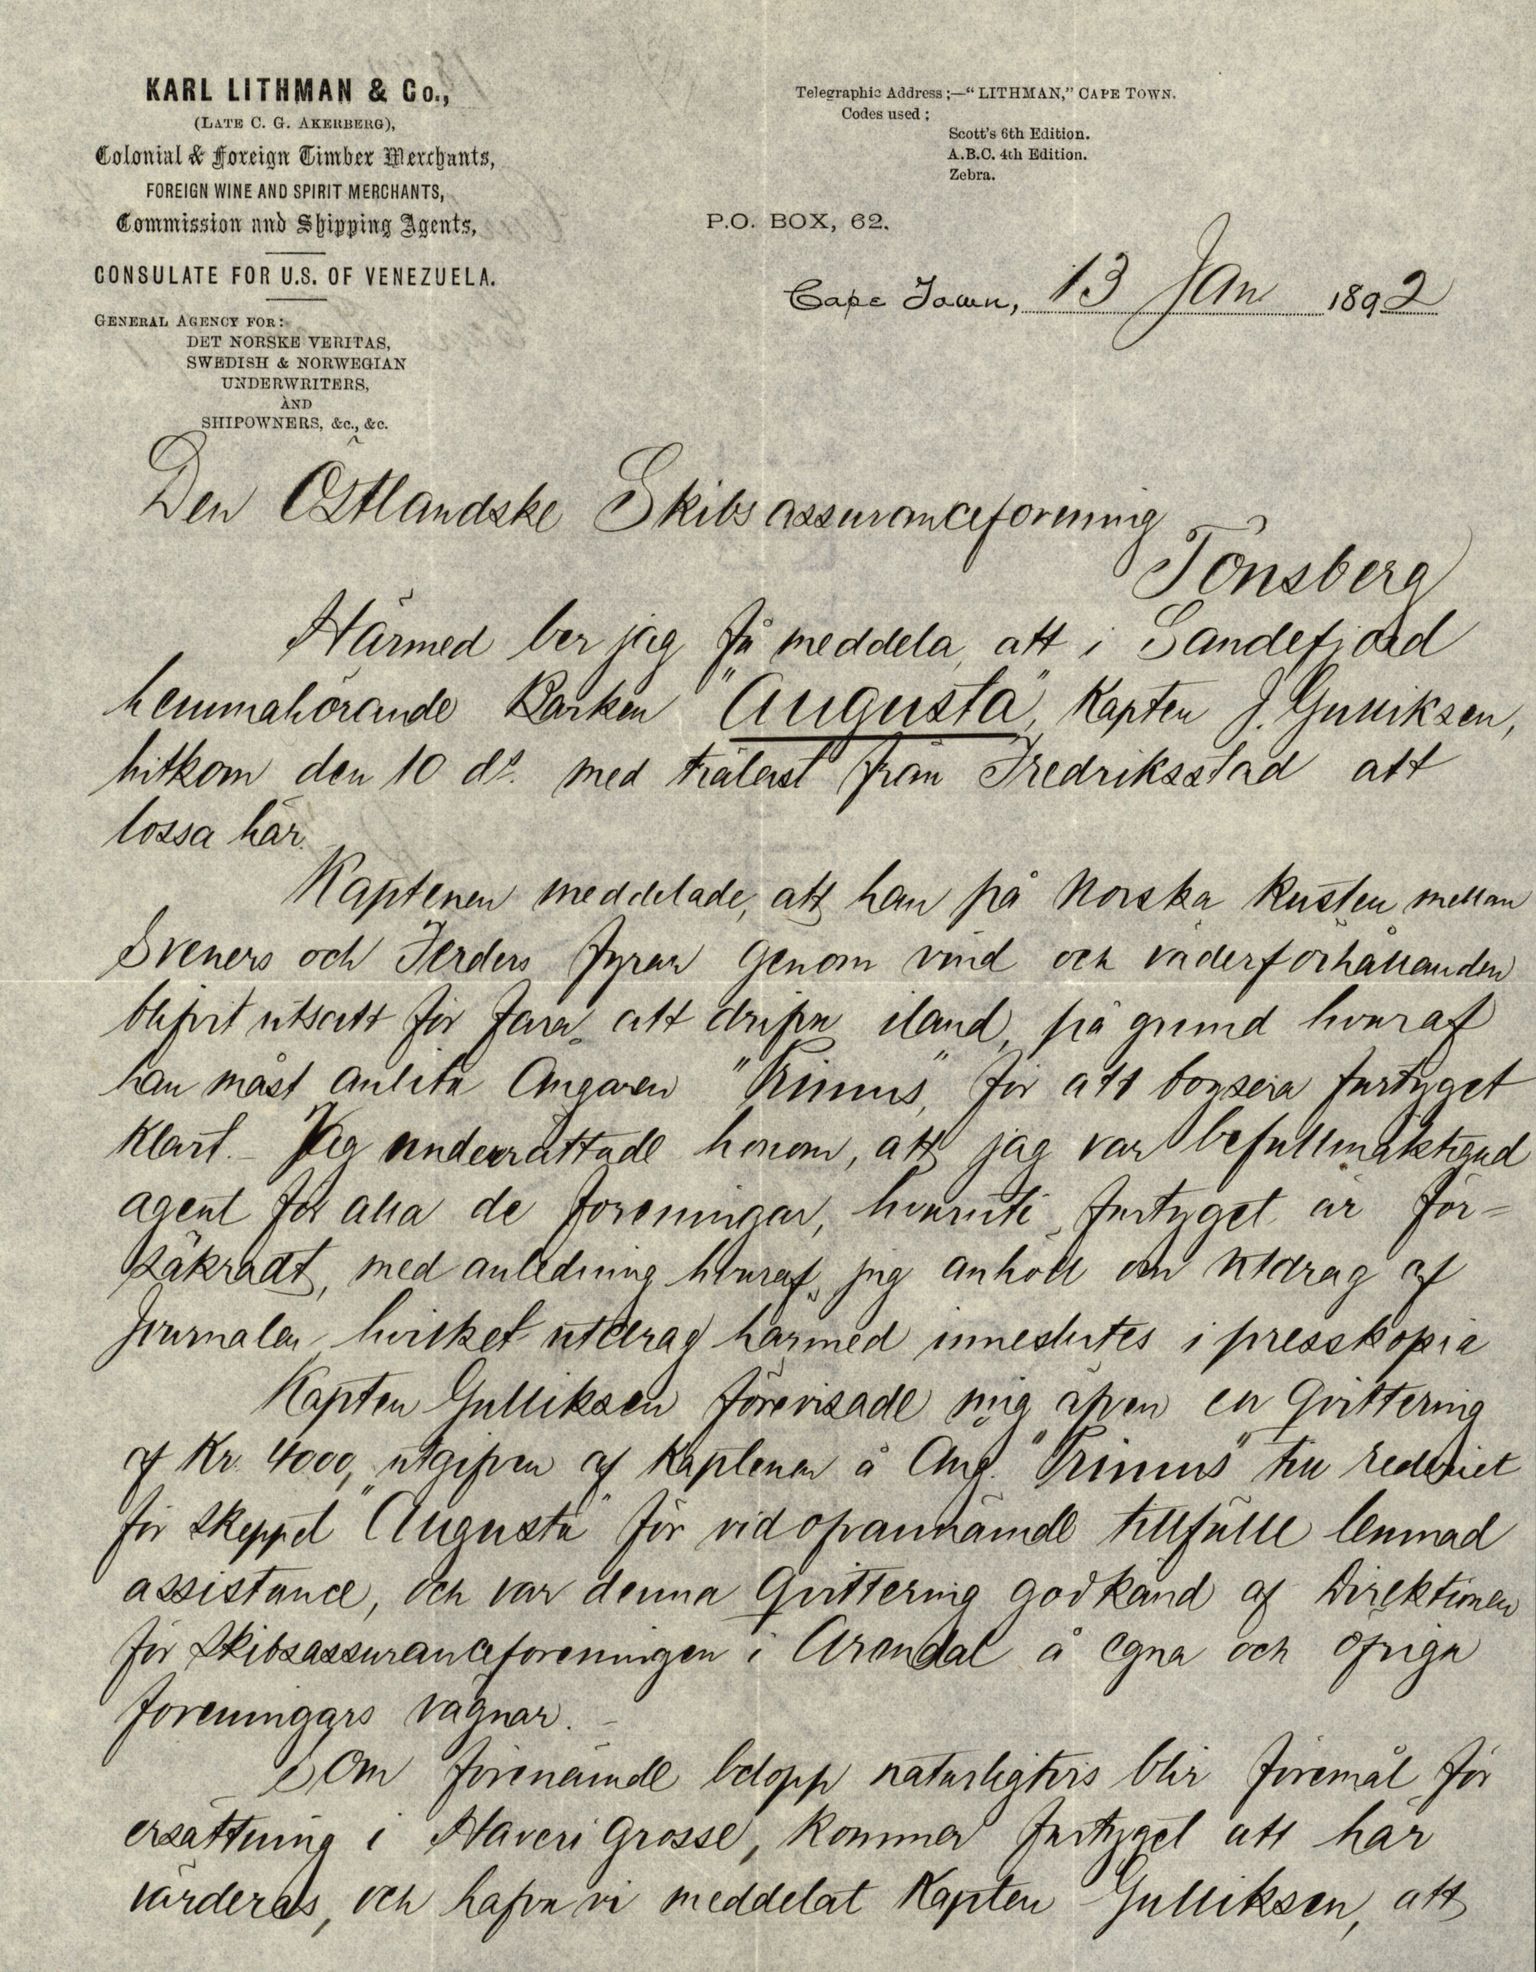 KARL LITHMAN & Co.,
(LATE C. G. AKERBERG),
Colonial & Foreign Timber Merchants,
FOREIGN WINE AND SPIRIT MERCHANTS,
Commission and Shipping Agents,
CONSULATE FOR U.S. OF VENEZUELA.
GENERAL AGENCY FOR:
DET NORSKE VERITAS,
SWEDISH & NORWEGIAN
UNDERWRITERS,
AND
SHIPOWNERS, &c., &c.
Telegraphic Address:—"LITHMAN," CAPE TOWN.
Codes used:
Scott's 6th Edition.
A.B.C. 4th Edition.
Zebra.
P.O. BOX, 62.
Cape Town, 13 Jan 1892
Den Östlandske Skibsassuranceforening
Tönsberg
Härmed ber jag få meddela, att i Sandefjord
hemmahörande Barken "Augusta", Kapten J. Gulliksen,
hitkom den 10 ds. med trälast från Fredriksstad att
lossa här.
Kaptenen meddelade, att han på Norska Kusten mellan
Sveners och Ferders fyrar genom vind och väderförhållanden
blifvit utsatt för fara att drifva iland, på grund hvaraf
han måst anlita Ångaren "Primus", för att bogsera fartyget
klart. - Jag underrättade honom, att jag var befullmäktigad
agent för alla de foreningar, hvaruti fartyget är för=
säkradt, med anledning hvaraf jag anhöll om utdrag af
Journalen, hvilket utdrag härmed inneslutes i presskopia
Kapten Gulliksen förevisade mig äfven en qvittering
af Kr. 4000, utgifven af Kaptenen å Ång. "Primus" till rederiet
för skeppet "Augusta" för vid ofvannämde tillfälle lemnad
assistance, och var denna qvittering godkänd af Direktionen
för Skibsassuranceforeningen i Arendal å egna och öfriga
foreningars vägnar. -
Som förenämde belopp naturligtvis blir föremål för
ersättning i Haveri Grosse, kommer fartyget att här
värderas, och hafva vi meddelat Kapten Gulliksen, att